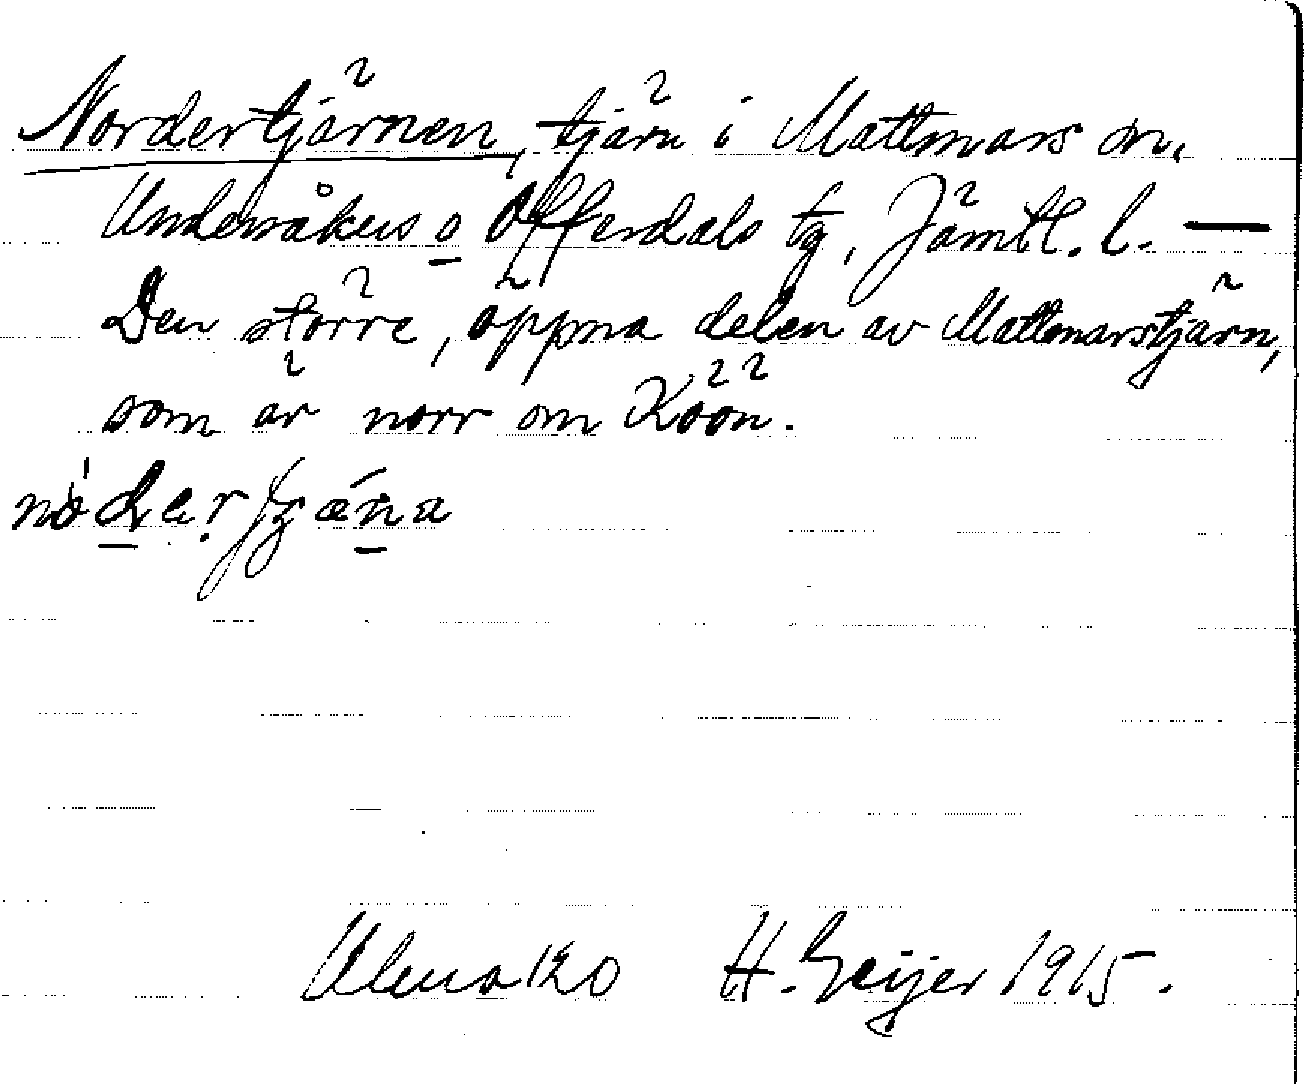 Nordertjärnen, tjärn i Mattmars sn,
Undersåkers o Offerdals tg, Jämtl. l. —
Den större, öppna delen av Mattmarstjärn,
som är norr om Köön.
H. Geijer 1915.